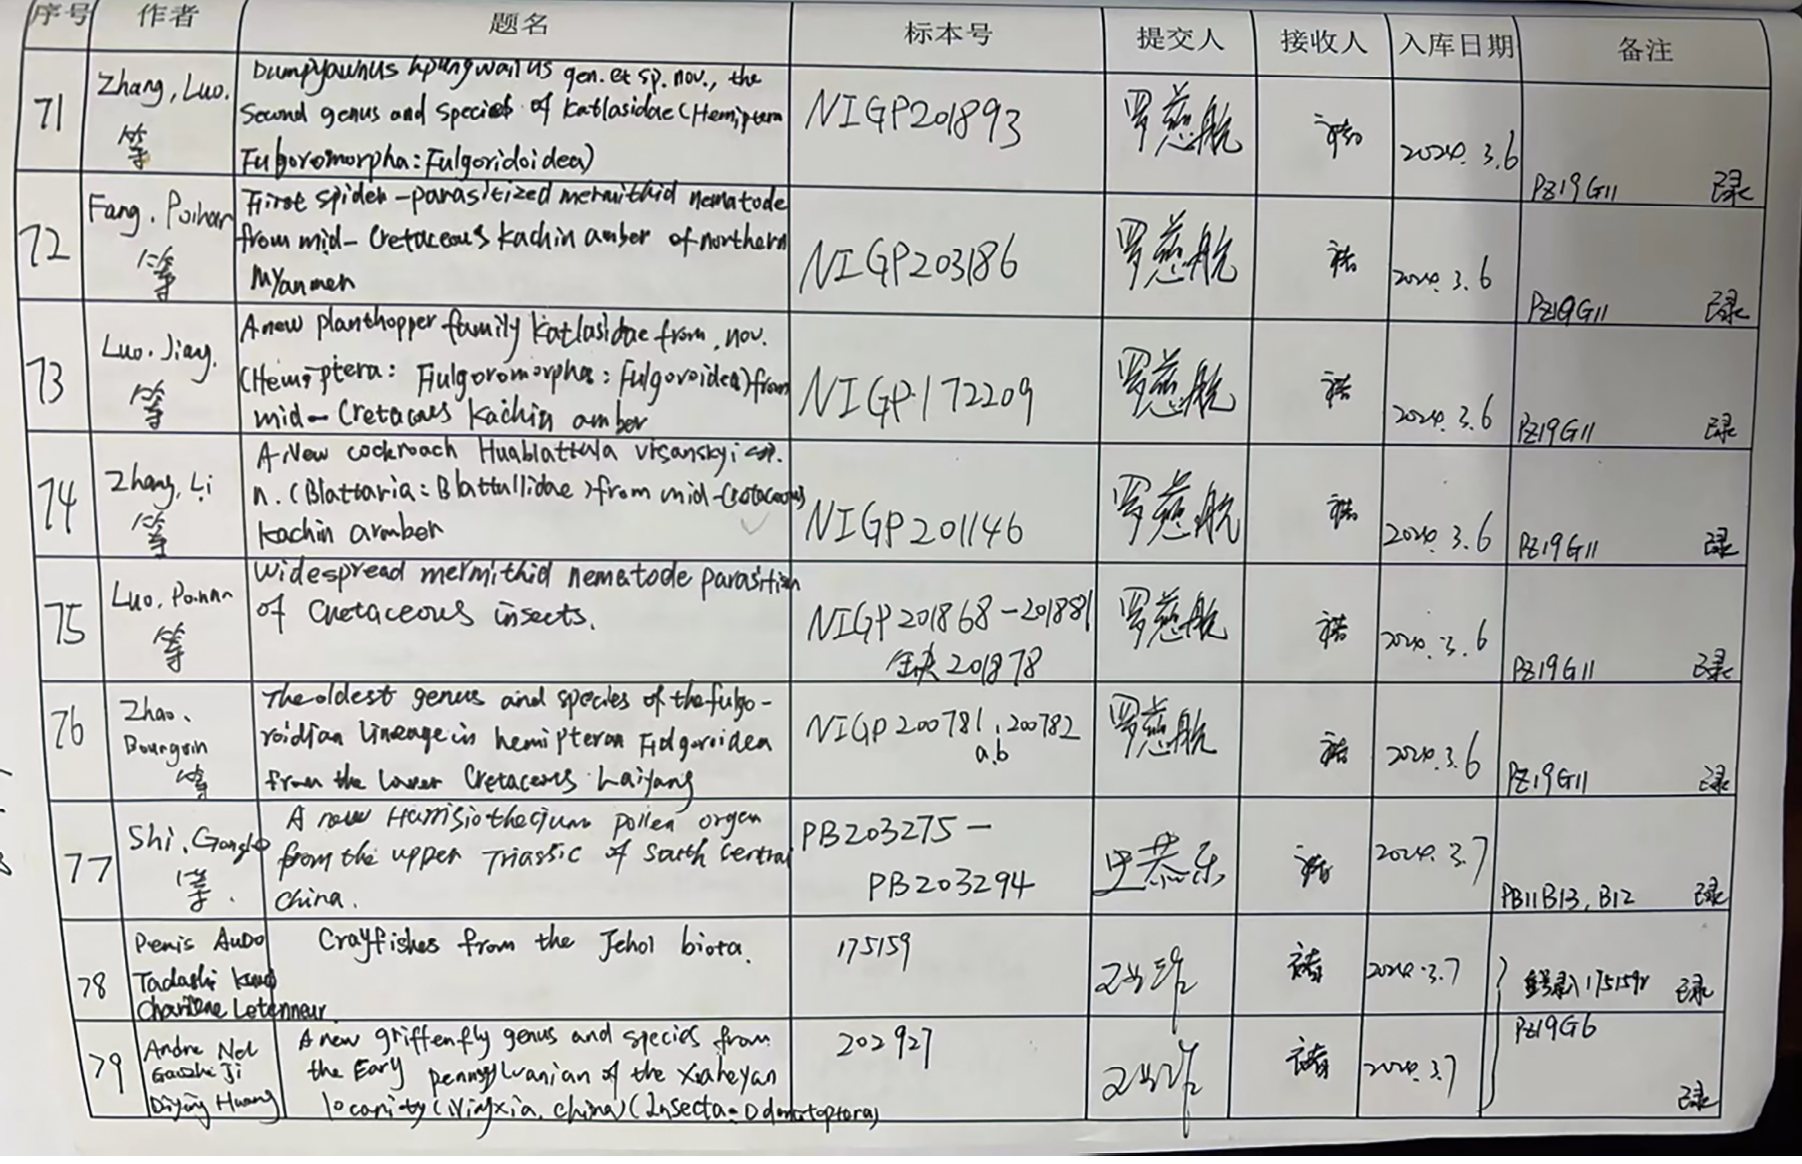 序号 作者 题名 标本号 提交人 接收人 入库日期 备注
71
Zhang, Luo.
等
gen. et sp. nov., the
Second genus and species of Katlasidae (Hemiptera
Fulgoromorpha: Fulgoridoidea)
NIGP201893
罗慈航
2024.3.6
PZ19G11 已录
72
Fang, Poinar
等
First spider-parasitized mermithid nematode
from mid-Cretaceous Kachin amber of northern
Myanmer
NIGP203186
罗慈航
2024.3.6
PZ19G11 已录
73
Luo. Jiang.
等
A new planthopper family Katlasidae from. nov.
(Hemiptera: Fulgoromorpha: Fulgoroidea) from
mid-Cretaceous Kachin amber
NIGP.172209
罗慈航
2024.3.6
PZ19G11 已录
74
Zhang, Li
等
A New cockroach Huablattula visanskyi sp.
n. (Blattaria: Blattullidae) from mid-Cretaceous
Kachin armber
NIGP201146
罗慈航
2024.3.6
PZ19G11 已录
75
Luo.
等
Widespread mermithid nematode parasitism
of Cretaceous insects.
NIGP201868-201881
缺201878
罗慈航
2024.3.6
PZ19G11 已录
76
Zhao、
Bourgoin
等
The oldest genus and species of the fulgo-
roidian lineage in hemipteran Fulgoroidea
from the lower Cretaceous Laiyang
NIGP200781, 200782
a,b
罗慈航
2024.3.6
PZ19G11 已录
77
Shi, Gongle
等.
A new Harrisiothecium pollen organ
from the upper Triassic of South Central
China.
PB203275-
PB203294
史恭乐
2024.3.7
PB11B13, B12 已录
78
Denis Audo
Tadashi Kawai
Charlène Letenneur
Crayfishes from the Jehol biota.
175159
2024.3.7
已录
79
Andre Nel
Diying Huang
A new griffenfly genus and species from
the Early Pennsylvanian of the Xiaheyan
locality (Ningxia, China) (Insecta: Odonatoptera)
202927
2024.3.7
PZ19G6
已录